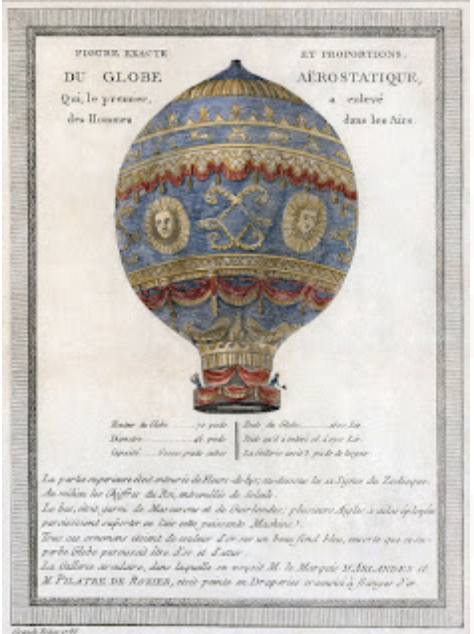 FIGURE EXACTE ET PROPORTIONS,
DU GLOBE AËROSTATIQUE,
Qui, le premier, a enlevé
des Hommes dans les Airs.
Hauteur du Globe 70 pieds
Diametre 46 pieds
Capacité pieds cubes
Poids du Globe 1600 Liv.
Poids qu'il a enlevé
La Gallerie avoit 3. pieds de largeur
La partie superieure étoit entourée de Fleurs-de-lys; au-dessous les 12 Signes du Zodiaque.
Au milieu les Chiffres du Roi, entremêlés de Soleils.
Le bas, étoit garni de Mascarons et de Guirlandes; plusieurs Aigles à ailes éployées
paroissoient supporter en l'air cette puissante Machine.
Tous ces ornemens étoient de couleur d'or sur un beau fond bleu, ensorte que ce su-
perbe Globe paroissoit être d'or et d'azur.
La Gallerie circulaire, dans laquelle on voyoit M. le Marquis D'ARLANDES et
M. PILATRE DE ROZIER, étoit peinte en Draperies cramoisi à franges d'or.